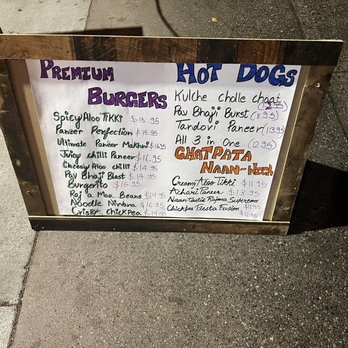 Premium
Burgers
Spicy Aloo Tikki $15.95
Paneer Perfection $15.95
Ultimate Paneer Makhni $16.95
Juicy chilli Paneer $16.95
Cheesy Aloo chilli $14.95
Pav Bhaji Blast $14.95
Burgerito $15.95
Raj a Maa Beans $14.95
Noodle Nirvana $16.95
Crispy Chickpea
Hot Dogs
Kulche cholle chaat
Pav Bhaji Burst
Tandoori Paneer
All 3 in One
Chatpata
Naan-wich
Creamy Aloo Tikki $11.95
Achari Paneer $13.95
Naantastic Rajma Supreme
Chickpea Fiesta Fusion